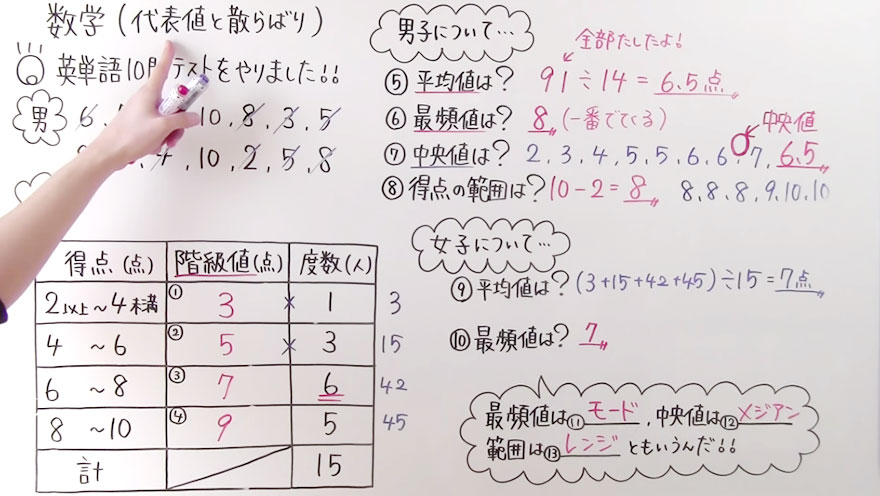 数学(代表値と散らばり)
英単語10問テストをやりました!!
男
6, 10, 8, 3, 5
4, 10, 2, 5, 8
得点(点) 階級値(点) 度数(人)
2以上~4未満 ① 3 × 1 3
4 ~6 ② 5 × 3 15
6 ~8 ③ 7 6 42
8 ~10 ④ 9 5 45
計 15
男子について…
全部たしたよ!
⑤平均値は? 91÷14=6.5点
⑥最頻値は? 8(一番でてくる)
中央値
⑦中央値は? 2,3,4,5,5,6,6,7, 6.5
⑧得点の範囲は? 10-2=8 8,8,8,9,10,10
女子について…
⑨平均値は?(3+15+42+45)÷15=7点
⑩最頻値は? 7
最頻値は⑪モード,中央値は⑫メジアン
範囲は⑬レンジともいうんだ!!